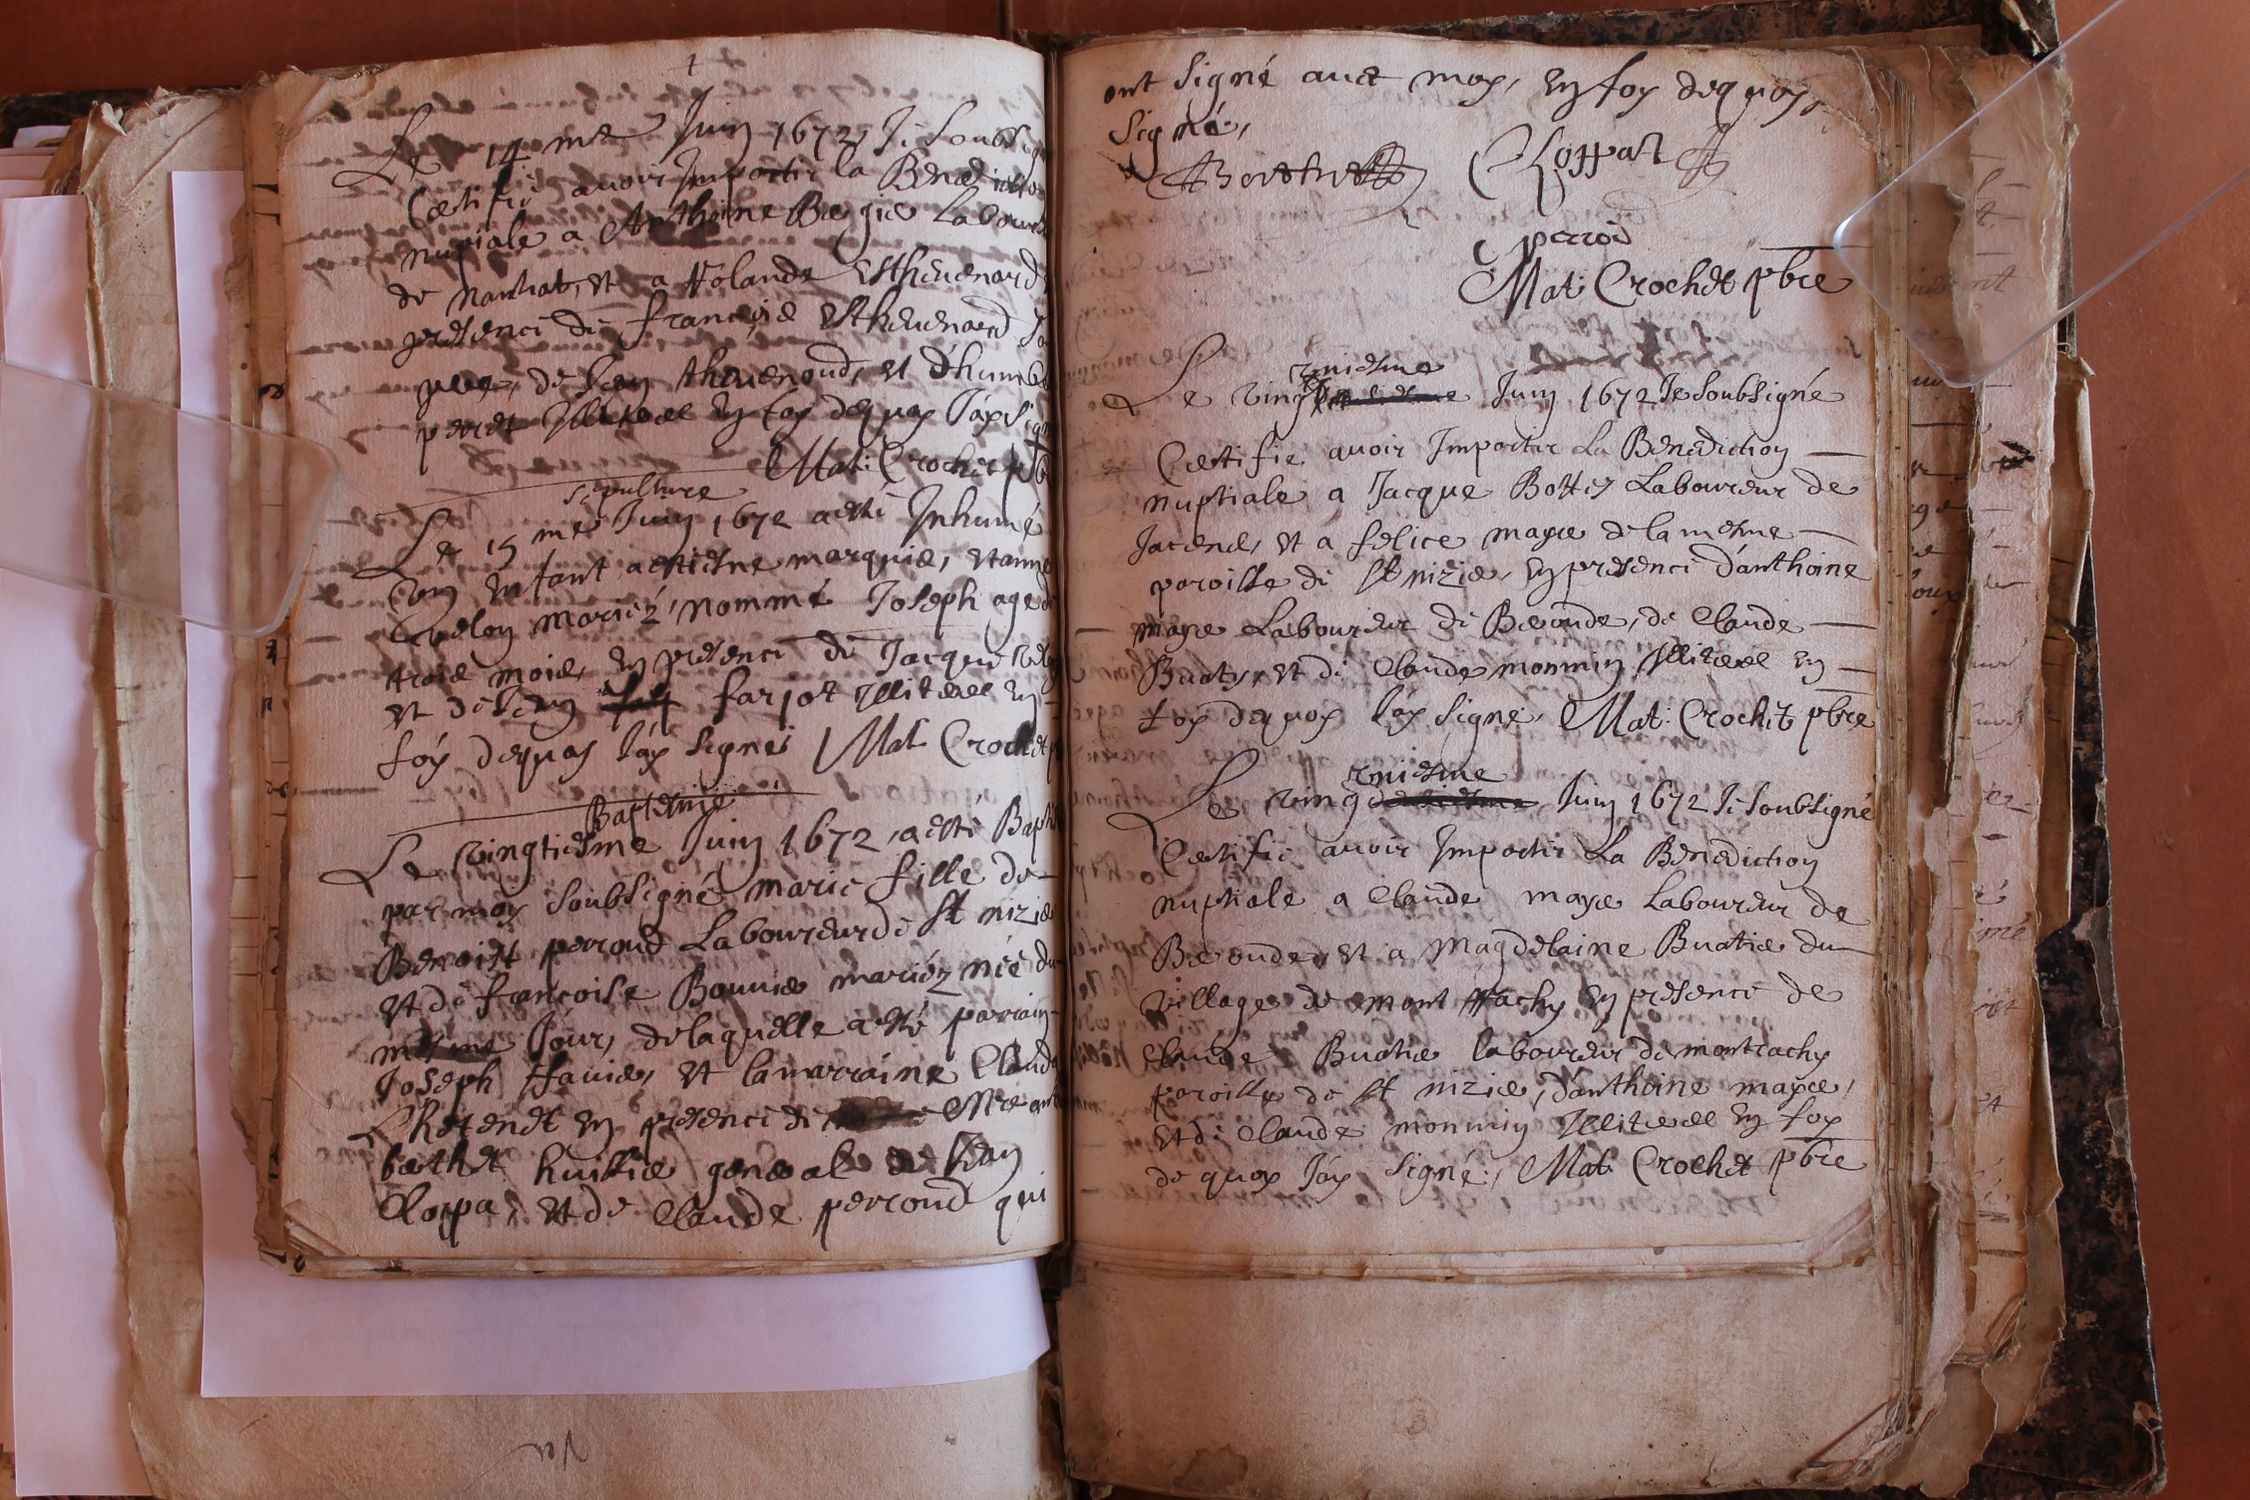 Le 14 me Juin 1672, Je Soubsign
Certifie avoir Imparti la Benedictio
nuptiale a Anthoine Bergier Laboure
de et a Holande Esthevenard
presence de francois Esthevenard
pere, de Jean thevenoud, et d'humbe
perret Illiteres En foy dequoy Jay Sig
Mat: Crochet pb
Sepulture
Le 15 me Juin 1672 a esté Inhumé
Un Enfant a estiene marquis, et anne
mariéz, nommé Joseph age d
trois mois, En presence de Jacque
et de Jean farjot Illiteres En
foy dequoy Jay Signé: Mat. Crochet p
Baptesme
Le vingtiesme Juin 1672, a esté Bapt
par moy Soubsigné marie fille de
Benoist perroud Laboureur de St nizie
et de francoise Bouvier mariéz née du
mesme Jour, de laquelle a esté parrain
Joseph et la marraine Claud
En presence de Mre ant
berthet huissier general de Jean
Cloppa, et de Claude perroud qui
ont Signé avec moy, En foy dequoy
Signé,
Berthet Cloppat
perroud
Mat: Crochet pbre
uniesme
Le vingt Juin 1672 Je Soubsigné
Certifie avoir Impartir La Benediction
nuptiale a Jacque Bottex Laboureur de
Jacene, et a felice maye de la mesme
paroisse de St nizier, En presence d'anthoine
maye Laboureur de Beronde, de Claude
Buaty, et de Claude monnin Illiteres En
foy dequoy Jay Signé, Mat: Crochet pbre
uniesme
Le vingt Juin 1672 Je Soubsigné
Certifie avoir Impartir La Benediction
nuptiale a Claude maye Laboureur de
Beronde, et a Magdelaine Buatie du
village de mont rachy En presence de
Claude Buatie laboureur de montrachy
paroisse de St nizier, d'anthoine maye,
et de Claude monnin Illiteres En foy
de quoy Jay Signé, Mat: Crochet pbre